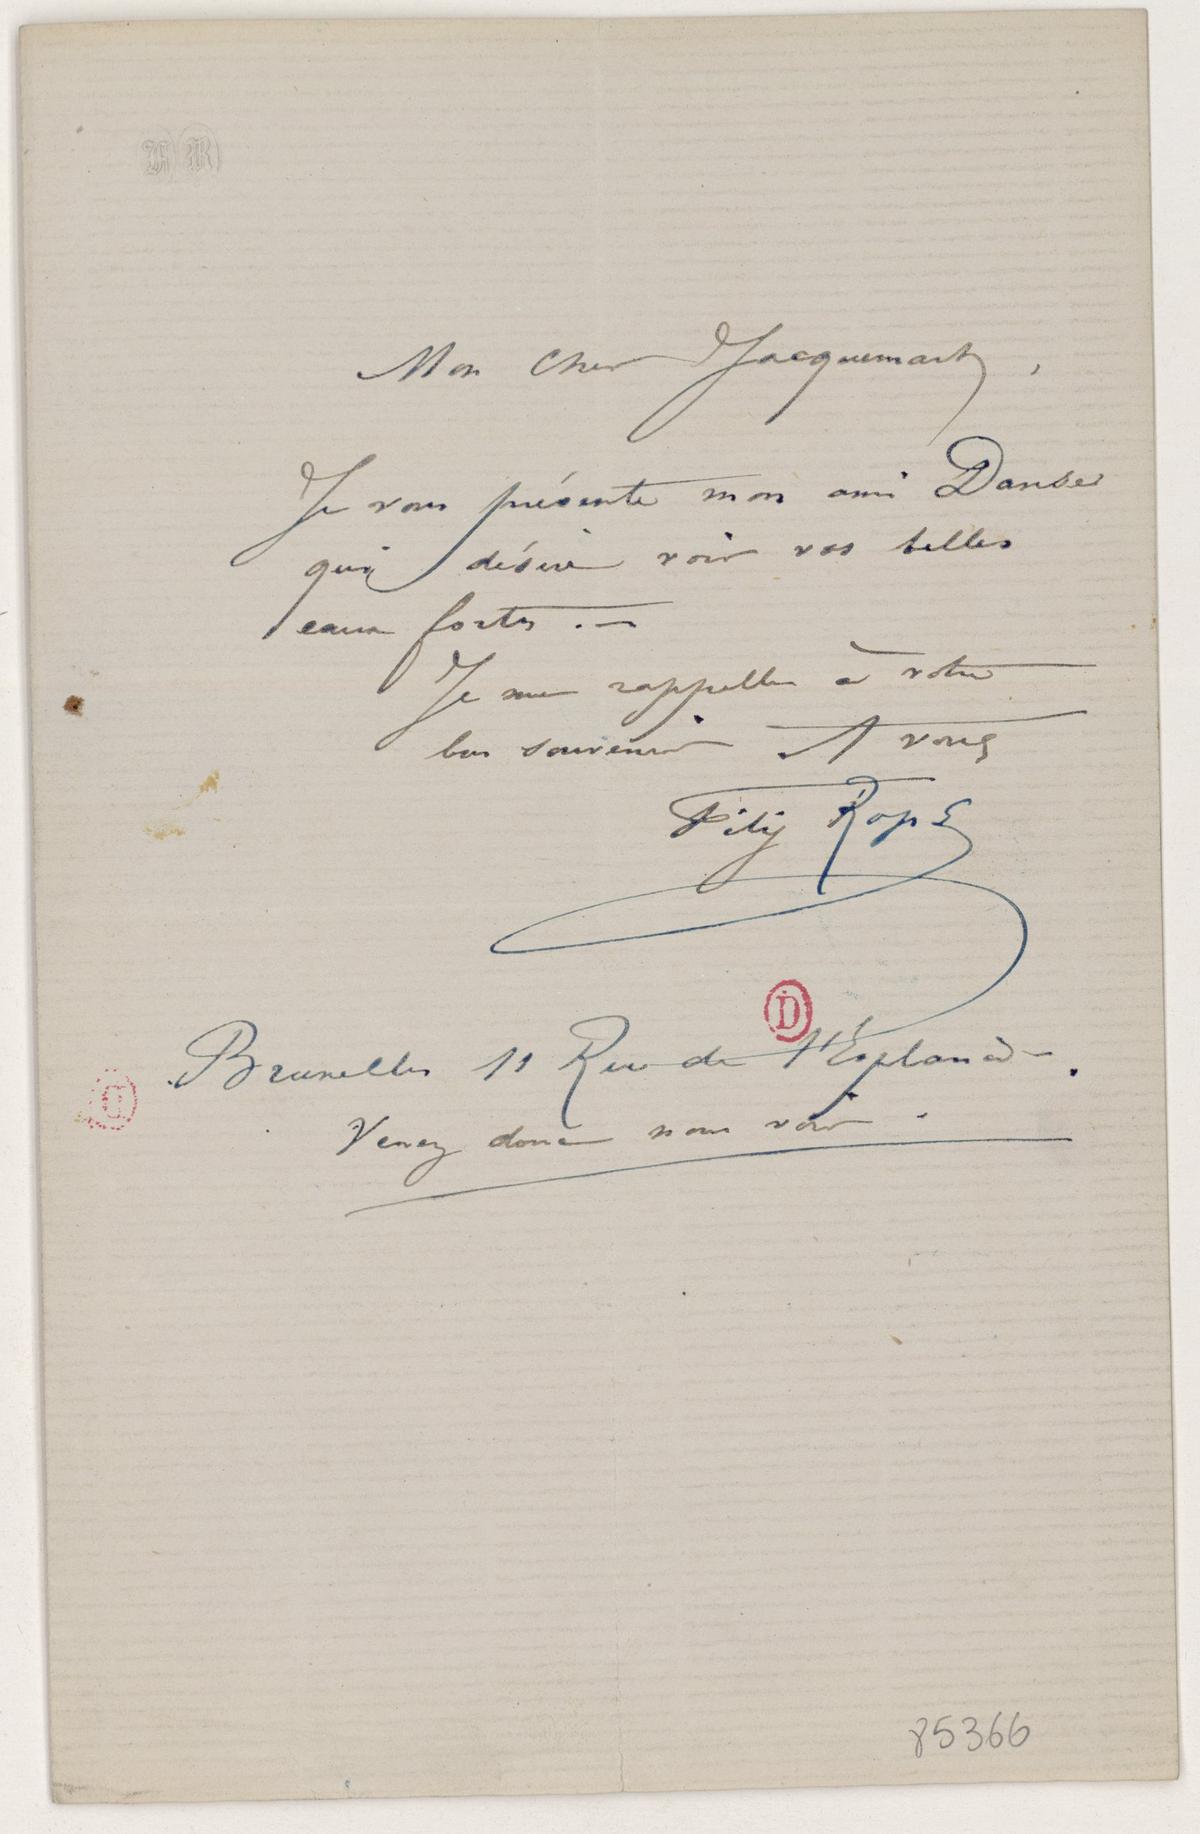 FR
Mon Cher Jacquemart,
Je vous présente mon ami Danse
qui désire voir vos belles
eaux fortes. —
Je me rappelle à votre
bon souvenir A vous
Fély Rops
D
Bruxelles 11 Rue de l'Esplanade.
D
Venez donc nous voir.
85366